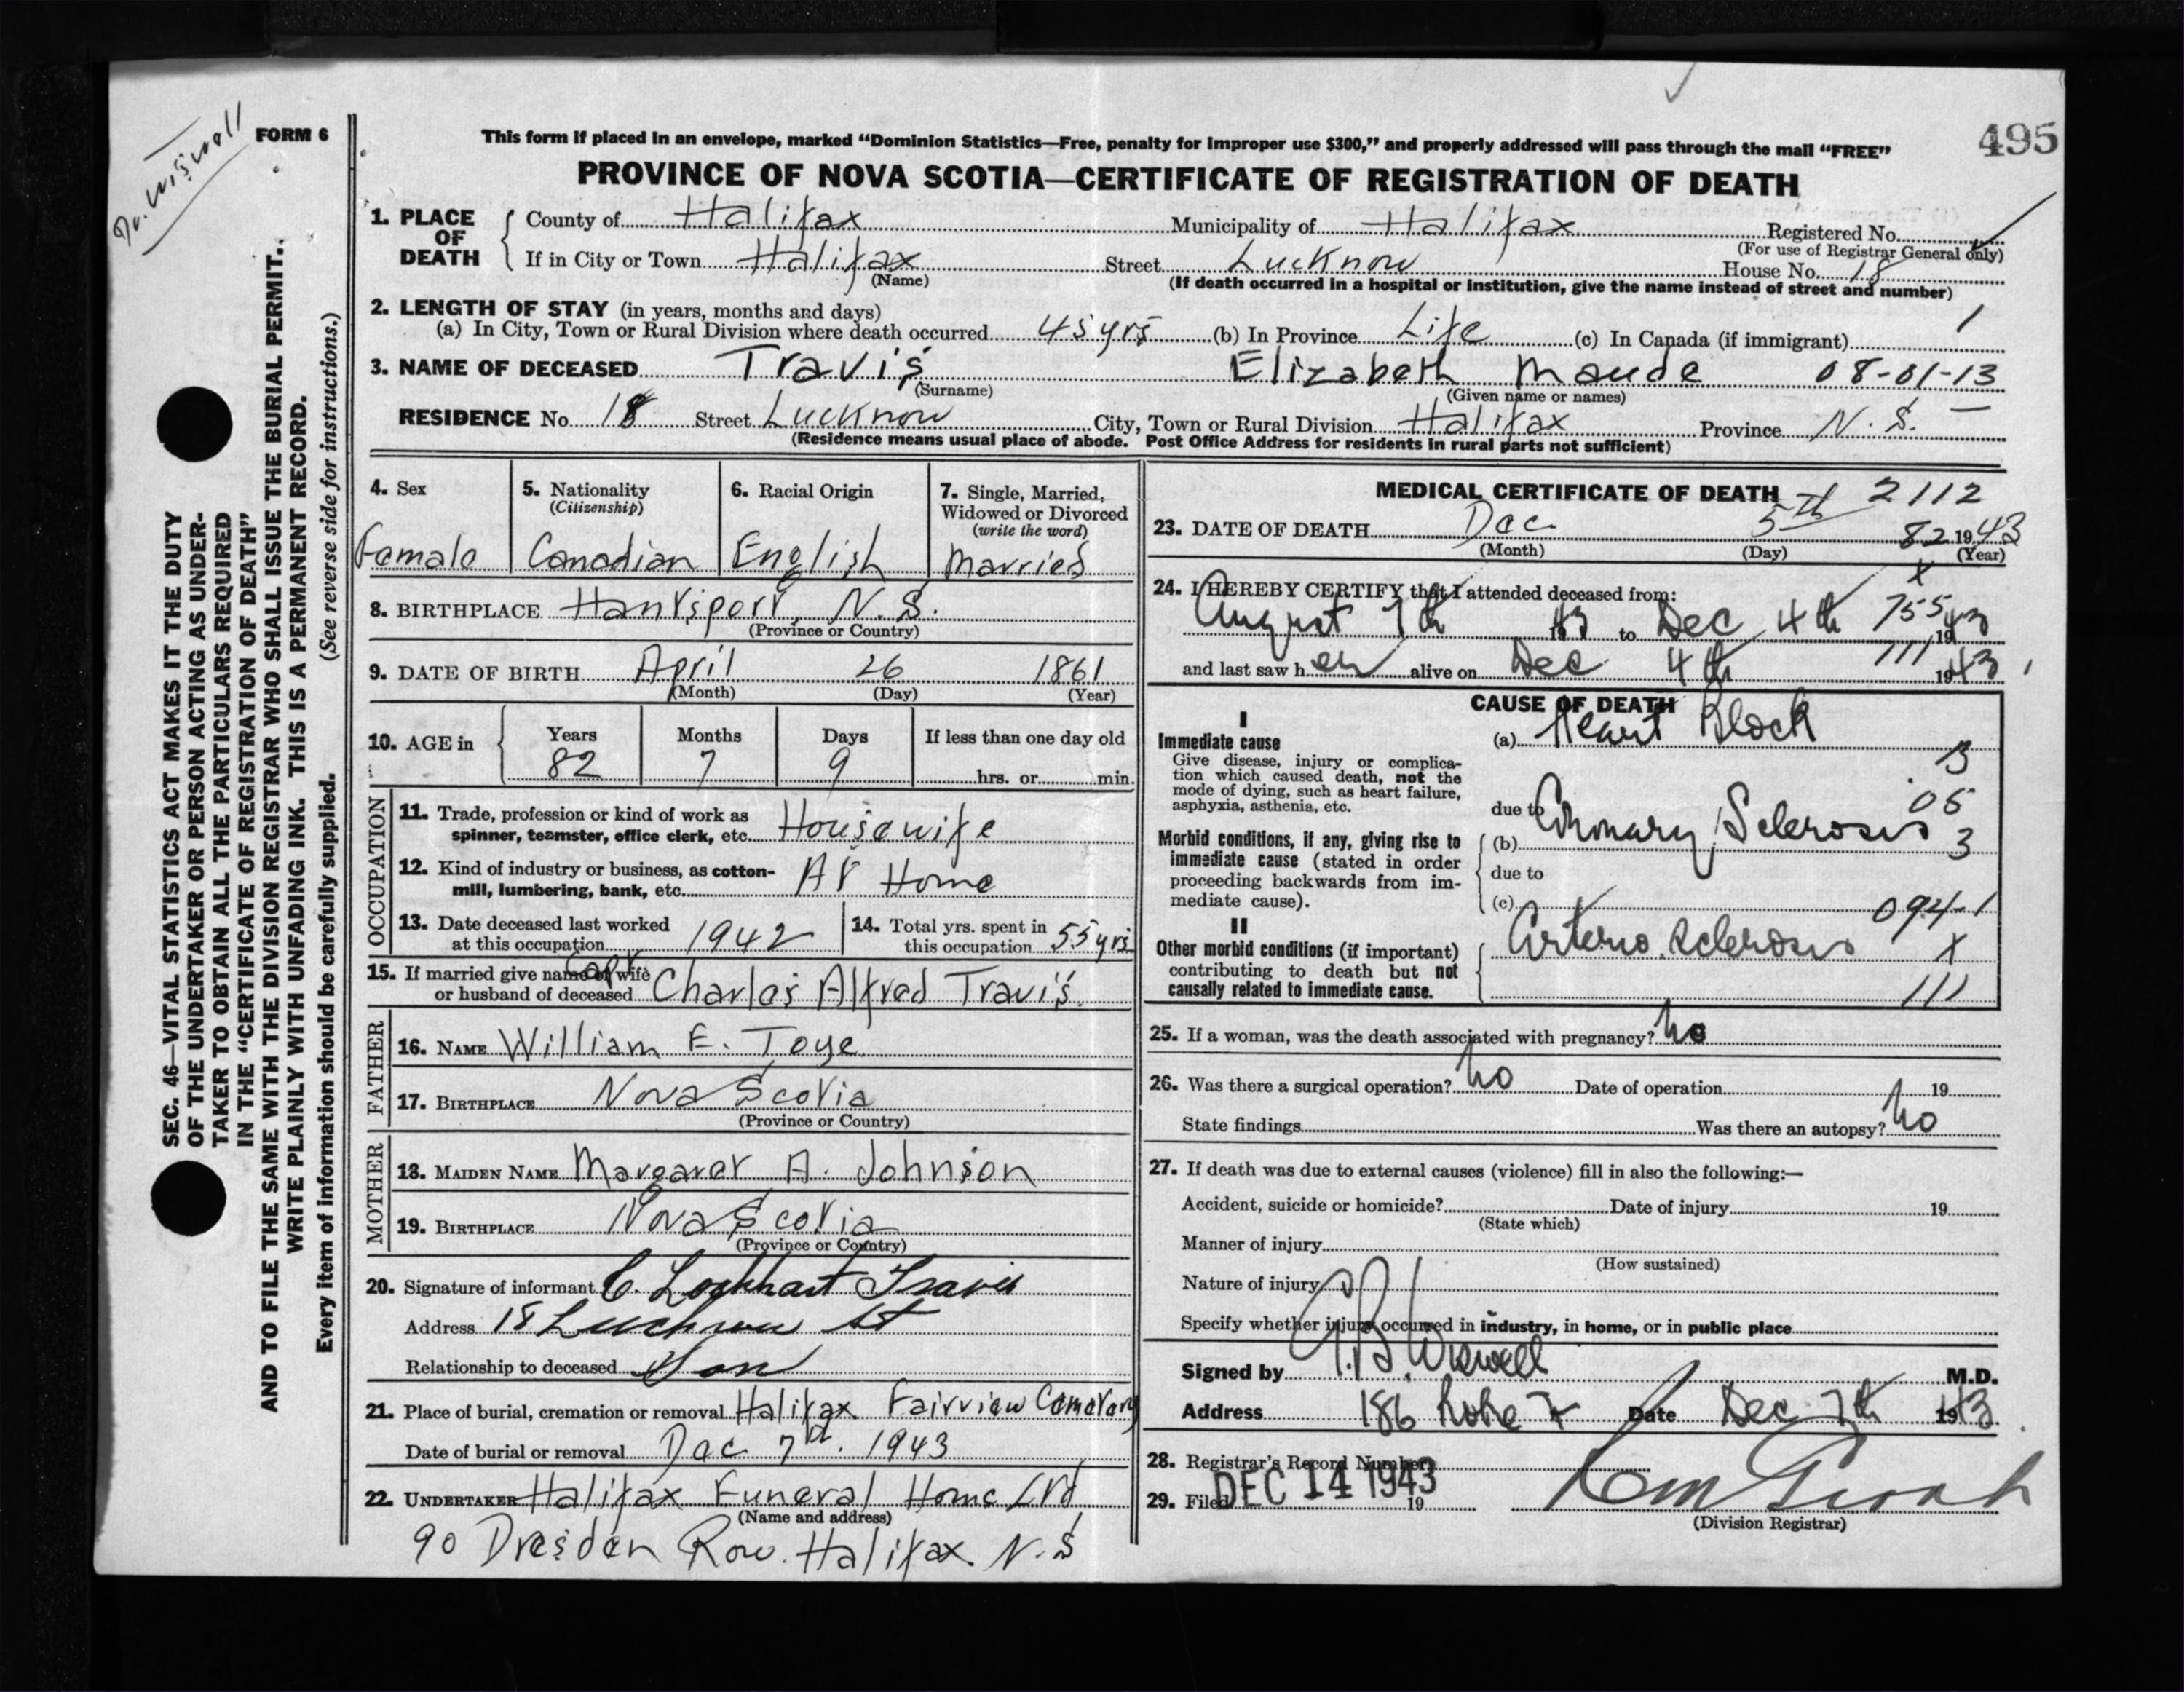 Dr. Wiswall
FORM 6
This form if placed in an envelope, marked “Dominion Statistics—Free, penalty for improper use $300,” and properly addressed will pass through the mail “FREE”
495
PROVINCE OF NOVA SCOTIA—CERTIFICATE OF REGISTRATION OF DEATH
SEC. 46—VITAL STATISTICS ACT MAKES IT THE DUTY
OF THE UNDERTAKER OR PERSON ACTING AS UNDER-
TAKER TO OBTAIN ALL THE PARTICULARS REQUIRED
IN THE “CERTIFICATE OF REGISTRATION OF DEATH”
AND TO FILE THE SAME WITH THE DIVISION REGISTRAR WHO SHALL ISSUE THE BURIAL PERMIT.
WRITE PLAINLY WITH UNFADING INK. THIS IS A PERMANENT RECORD.
Every item of information should be carefully supplied. (See reverse side for instructions.)
1. PLACE OF DEATH County of Halifax Municipality of Halifax Registered No.
(For use of Registrar General only)
If in City or Town Halifax Street Lucknow House No. 18
(Name) (If death occurred in a hospital or institution, give the name instead of street and number)
2. LENGTH OF STAY (in years, months and days)
(a) In City, Town or Rural Division where death occurred 45 yrs (b) In Province Life (c) In Canada (if immigrant) 1
3. NAME OF DECEASED Travis Elizabeth Maude 08-01-13
(Surname) (Given name or names)
RESIDENCE No. 18 Street Lucknow City, Town or Rural Division Halifax Province N.S.
(Residence means usual place of abode. Post Office Address for residents in rural parts not sufficient)
4. Sex 5. Nationality 6. Racial Origin 7. Single, Married,
(Citizenship) Widowed or Divorced
(write the word)
Female Canadian English Married
8. BIRTHPLACE Hantsport, N.S.
(Province or Country)
9. DATE OF BIRTH April 26 1861
(Month) (Day) (Year)
10. AGE in Years Months Days If less than one day old
82 7 9 hrs. or min.
OCCUPATION
11. Trade, profession or kind of work as
spinner, teamster, office clerk, etc. Housewife
12. Kind of industry or business, as cotton-
mill, lumbering, bank, etc. At Home
13. Date deceased last worked 14. Total yrs. spent in
at this occupation 1942 this occupation 55 yrs.
15. If married give name of wife Capt
or husband of deceased Charles Alfred Travis.
FATHER
16. NAME William E. Toye
17. BIRTHPLACE Nova Scotia
(Province or Country)
MOTHER
18. MAIDEN NAME Margaret A. Johnson
19. BIRTHPLACE Nova Scotia
(Province or Country)
20. Signature of informant C. Lockhart Travis
Address 18 Lucknow St
Relationship to deceased Son
21. Place of burial, cremation or removal Halifax Fairview Cemetery
Date of burial or removal Dec 7th. 1943
22. UNDERTAKER Halifax Funeral Home Ltd
(Name and address)
90 Dresden Row. Halifax N.S
MEDICAL CERTIFICATE OF DEATH 2112
23. DATE OF DEATH Dec. 5th 82 1943
(Month) (Day) (Year)
24. I HEREBY CERTIFY that I attended deceased from: x
August 7th 1943 to Dec 4th 755 1943
and last saw her alive on Dec 4th 111 1943
CAUSE OF DEATH
I
Immediate cause (a) Heart Block
Give disease, injury or complica-
tion which caused death, not the
mode of dying, such as heart failure,
asphyxia, asthenia, etc.
due to 05
Morbid conditions, if any, giving rise to
immediate cause (stated in order
proceeding backwards from im-
mediate cause).
(b) Coronary Sclerosis 3
due to
(c) 094-1
II
Other morbid conditions (if important)
contributing to death but not
causally related to immediate cause.
Arterio. Sclerosis x
111
25. If a woman, was the death associated with pregnancy? no
26. Was there a surgical operation? no Date of operation 19
State findings Was there an autopsy? no
27. If death was due to external causes (violence) fill in also the following:—
Accident, suicide or homicide? Date of injury 19
(State which)
Manner of injury
(How sustained)
Nature of injury
Specify whether injury occurred in industry, in home, or in public place
Signed by Wiswell M.D.
Address 186 Date Dec 7th 1943
28. Registrar's Record Number
29. Filed DEC 14 1943 19
(Division Registrar)